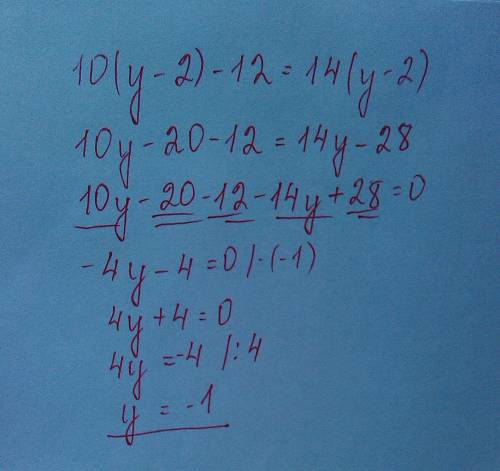 10(y-2)-12=14(y-2)
10y-20-12=14y-28
10y-20-12-14y+28=0
-4y-4=0/·(-1)
4y+4=0
4y=-4 /:4
y=-1